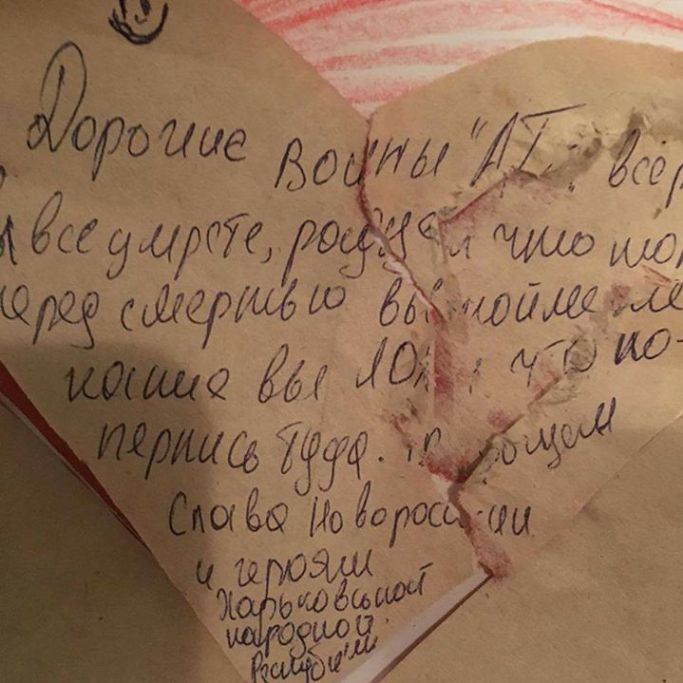 Дорогие воины "АТ
вы все умрете, радует что
перед смертью вы поймете
какие вы что по-
перлись туда.
Слава Новороссии
и героям
Харьковской
народной
Республики